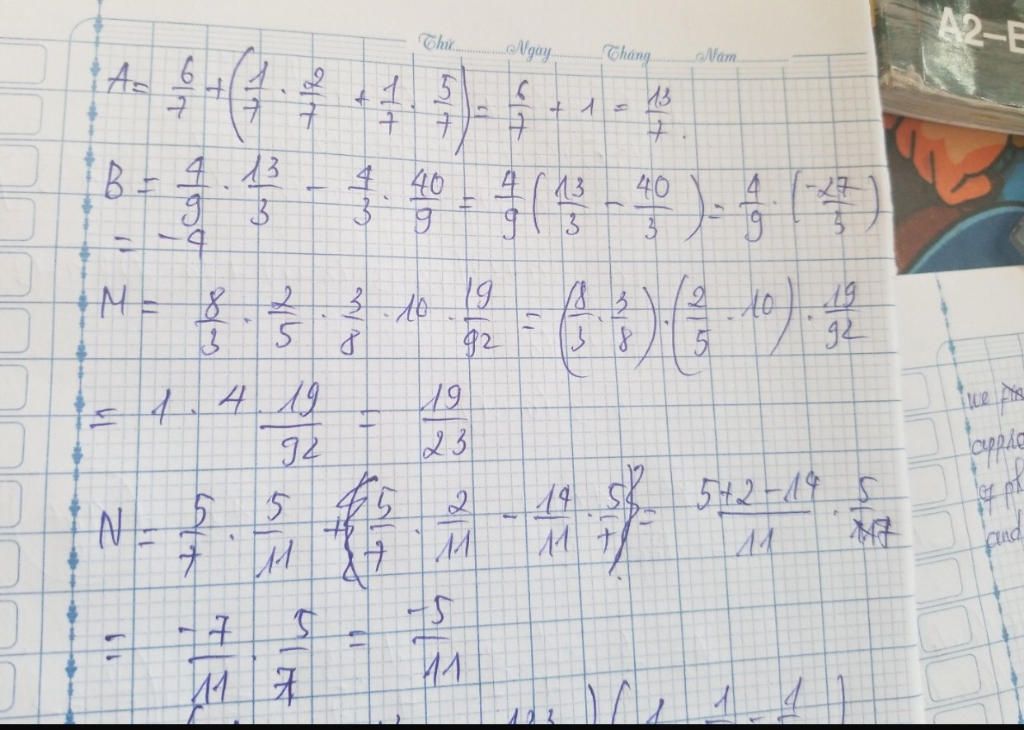 A2-E
Thứ Ngày Tháng Năm
A = 6/7 + (1/7 . 2/7 + 1/7 . 5/7) = 6/7 + 1 = 13/7.
B = 4/9 . 13/3 - 4/3 . 40/9 = 4/9 (13/3 - 40/3) = 4/9 . (-27/3)
= -4
M = 8/3 . 2/5 . 3/8 . 10 . 19/92 = (8/3 . 3/8) . (2/5 . 10) . 19/92
= 1 . 4 . 19/92 = 19/23
N = 5/7 . 5/11 + 5/7 . 2/11 - 14/11 . 5/7 = 5+2-14/11 . 5/7
= -7/11 . 5/7 = -5/11
we
and